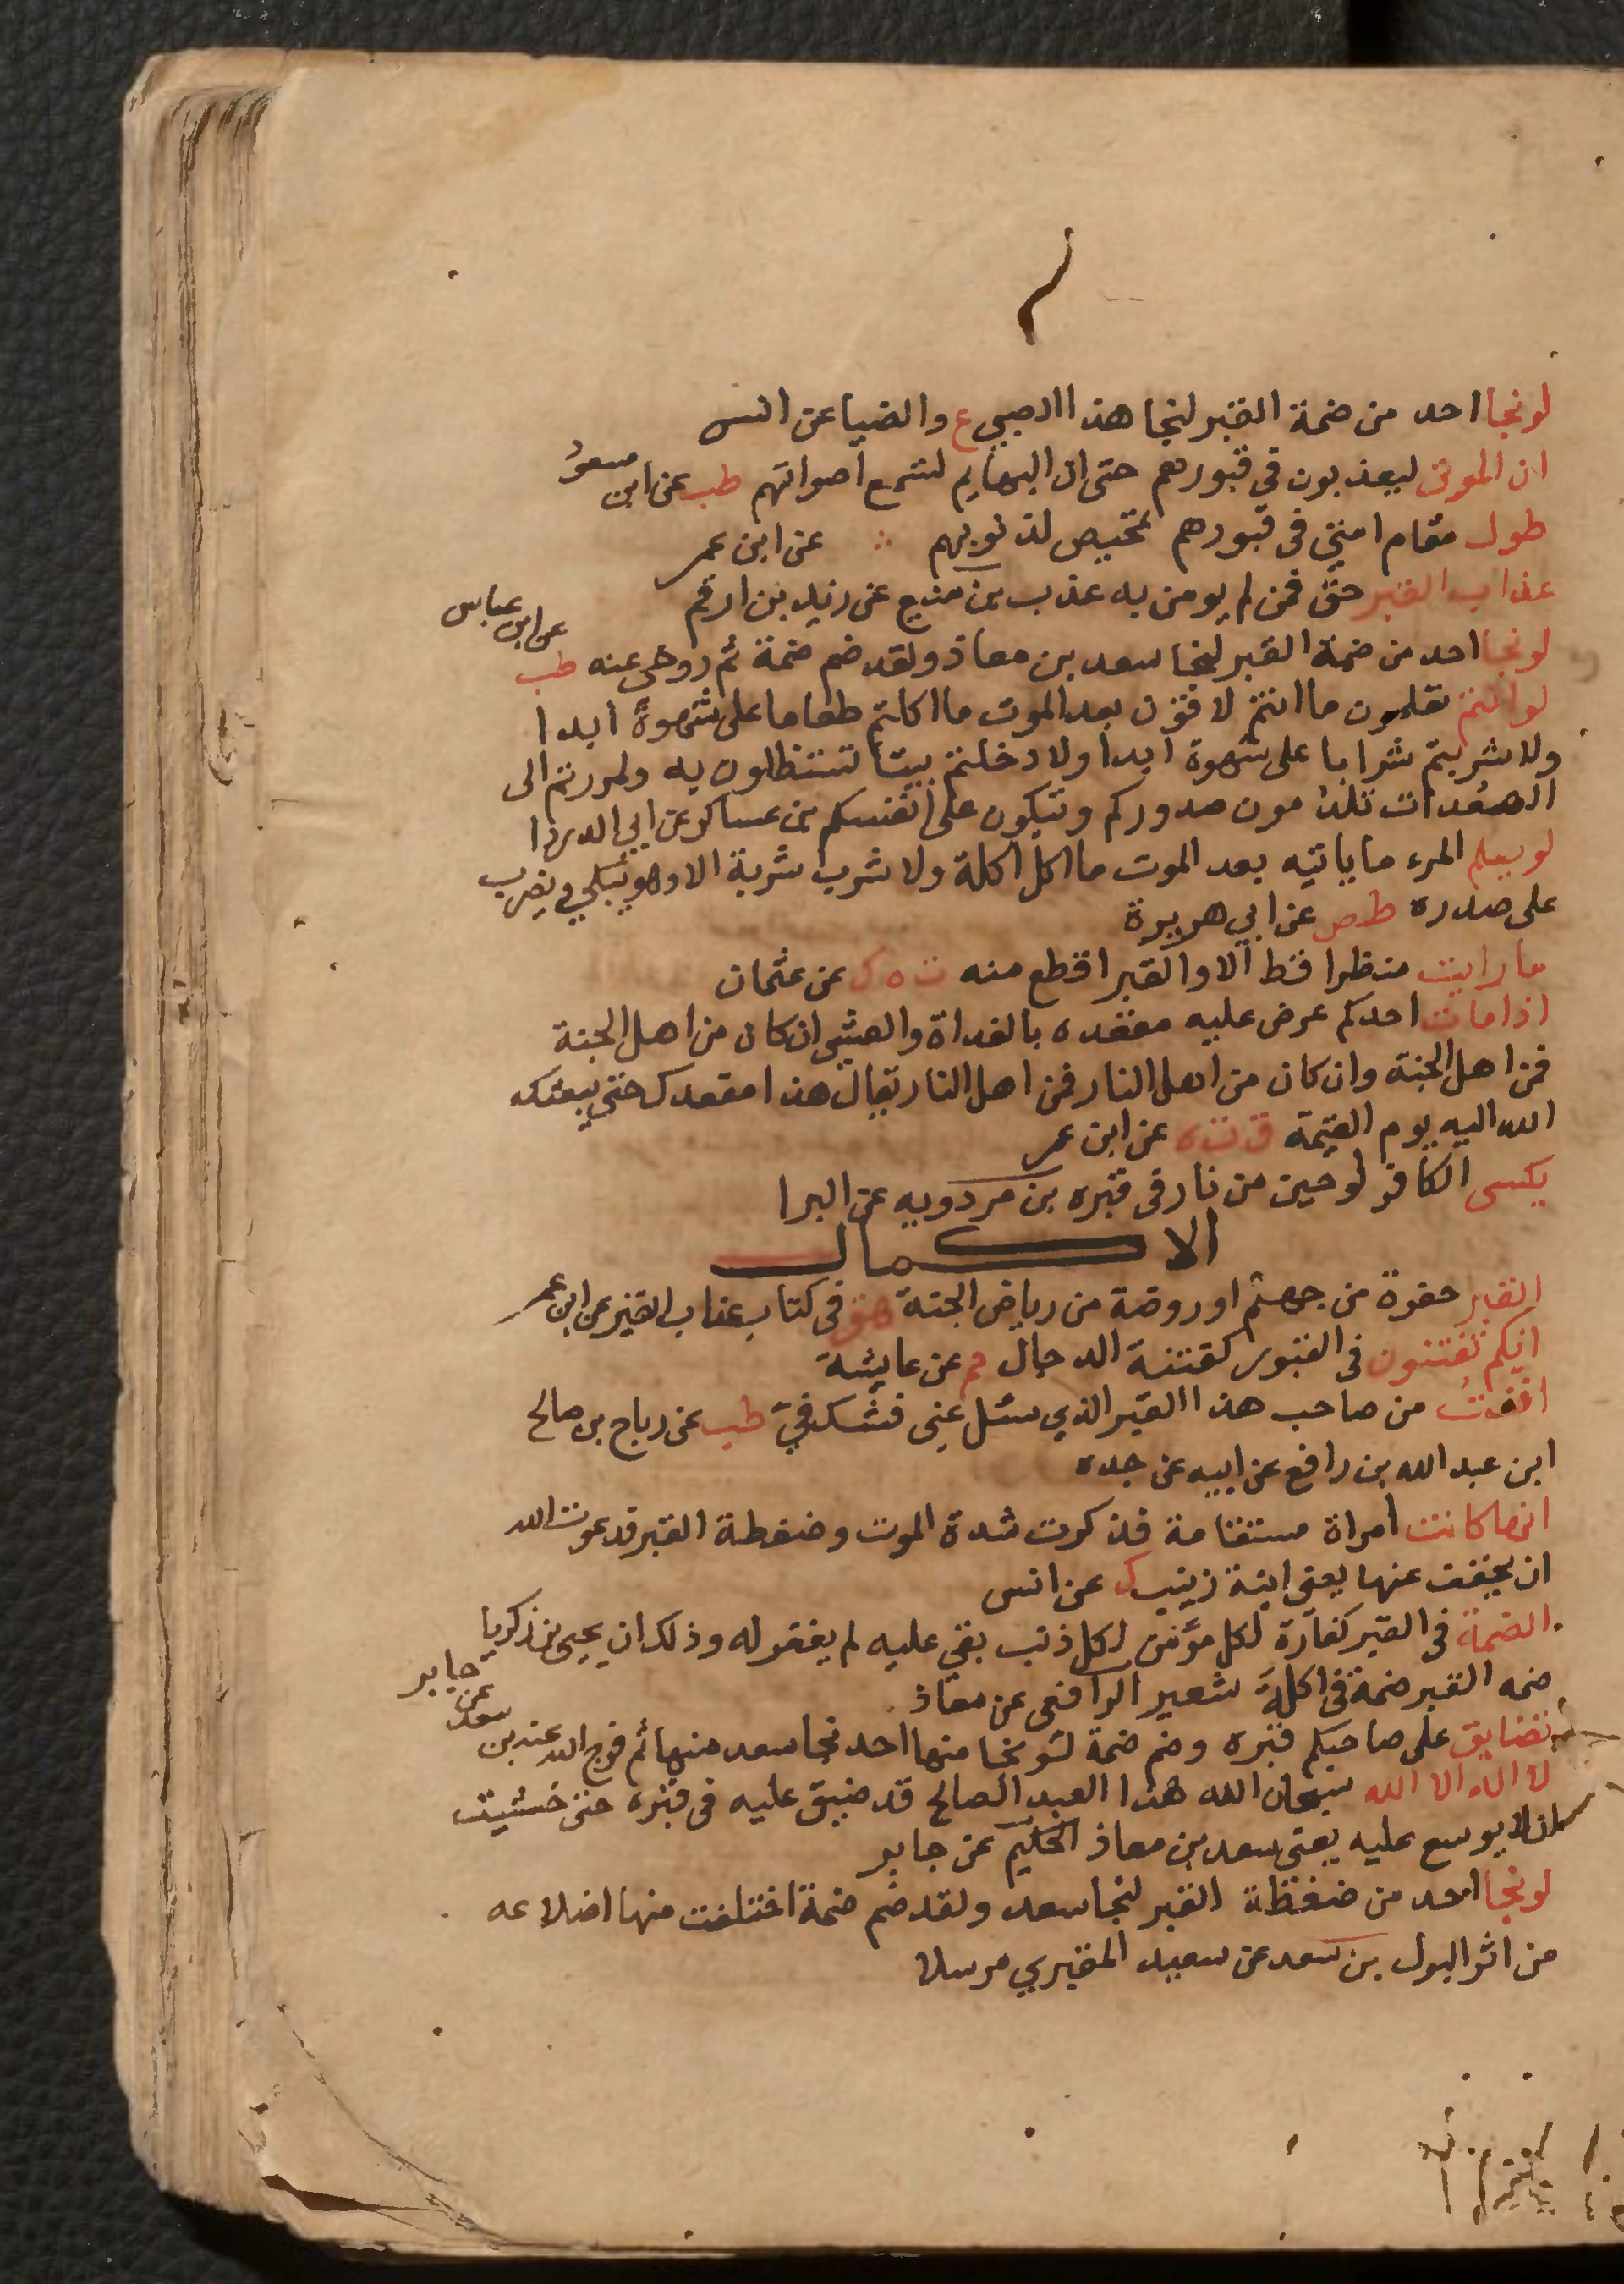 لو نجا احد من ضمة القبر لنجا هذا الصبي ع والضيا عن انس
ان الموتى ليعذبون في قبورهم حتى ان البهايم لتسمع اصواتهم طب عن ابن مسعود
طول مقام امتي في قبورهم تمحيص لذنوبهم عن ابن عمر
عذاب القبر حق فمن لم يومن به عذب بن منيع عن زيد بن ارقم
لو نجا احد من ضمة القبر لنجا سعد بن معاذ ولقد ضم ضمة ثم روخي عنه طب عن ابن عباس
لو انتم تعلمون ما انتم لاقون بعد الموت ما اكلتم طعاما على شهوة ابدا
ولا شربتم شرابا على شهوة ابدا ولا دخلتم بيتا تستظلون به ولمررتم الى
الصعدات تلدمون صدوركم وتبكون على انفسكم بن عساكر عن ابي الدردا
لو يعلم المرء ما ياتيه بعد الموت ما اكل اكلة ولا شرب شربة الا وهو يبكي ويضرب
على صدره طص عن ابي هريرة
ما رايت منظرا قط الا والقبر افظع منه ت ه ك عن عثمان
اذا مات احدكم عرض عليه مقعده بالغداة والعشي ان كان من اهل الجنة
فمن اهل الجنة وان كان من اهل النار فمن اهل النار يقال هذا مقعدك حتى يبعثك
الله اليه يوم القيمة ق ت ه عن ابن عمر
يكسى الكافر لوحين من نار في قبره بن مردويه عن البرا
الاكمال
القبر حفرة من جهنم او روضة من رياض الجنة هق في كتاب عذاب القبر عن ابن عمر
انكم تفتنون في القبور كفتنة الدجال حم عن عايشة
اففت من صاحب هذا القبر الذي سئل عني فشك في طب عن رباح بن صالح
ابن عبد الله بن رافع عن ابيه عن جده
انها كانت امراة مستقامة فذكرت شدة الموت وضغطة القبر فدعوت الله
ان يخفف عنها يعني ابنة زينب ك عن انس
الضمة في القبر كفارة لكل مؤمن لكل ذنب بقي عليه لم يغفر له وذلك ان يحيى بن زكريا
ضمه القبر ضمة في اكلة شعير الرافعي عن معاذ
تضايق على صاحبكم قبره وضم ضمة لو نجا منها احد نجا سعد منها ثم فرج الله عنه بن سعد عن جابر
لا اله الا الله سبحان الله هذا العبد الصالح قد ضيق عليه في قبره حتى خشيت
ان لا يوسع عليه يعني سعد بن معاذ الحكيم عن جابر
لو نجا احد من ضغظة القبر لنجا سعد ولقد ضم ضمة اختلفت منها اضلاعه
من اثر البول بن سعد عن سعيد المقبري مرسلا